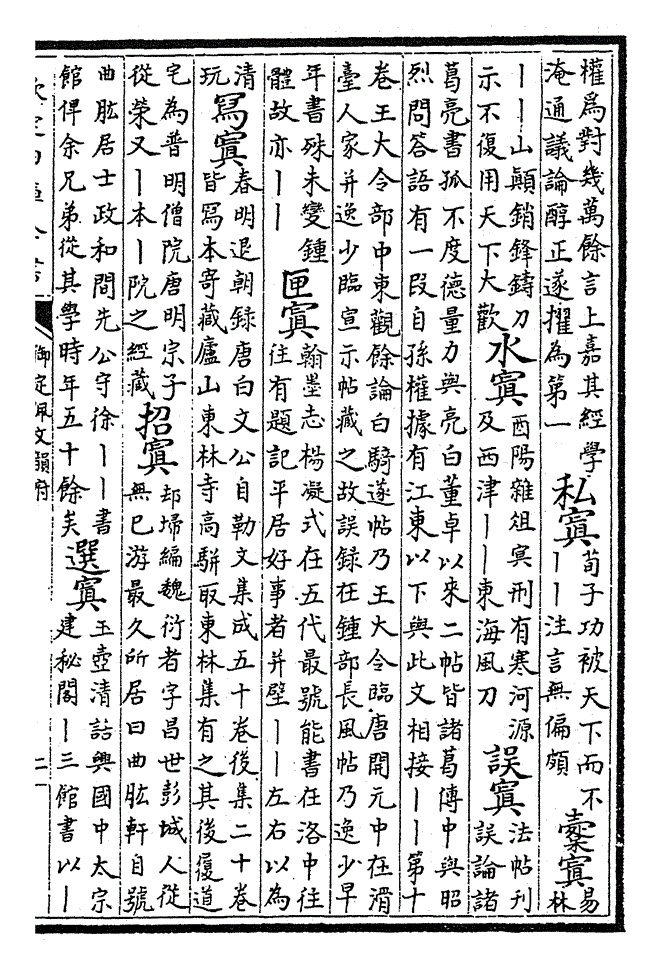 權爲對幾萬餘言上嘉其經學
淹通議論醇正遂擢為第一
私寘
荀子功被天下而不
——注言無偏頗
櫜寘
易
林
——山顛銷鋒鑄刀
示不復用天下大歡
水寘
酉陽雜俎冥刑有寒河源
及西津——東海風刀
誤寘
法帖刊
誤論諸
葛亮書孤不度德量力與亮白董卓以來二帖皆諸葛傳中與昭
烈問答語有一段自孫權據有江東以下與此文相接——第十
卷王大令部中東觀餘論白騎遂帖乃王大令臨唐開元中在滑
臺人家并逸少臨宣示帖藏之故誤録在鍾部長風帖乃逸少早
年書殊未變鍾
體故亦——
匣寘
翰墨志楊凝式在五代最號能書在洛中往
往有題記平居好事者并壁——左右以為
清
玩
冩寘
春明退朝録唐白文公自勒文集成五十卷後集二十卷
皆冩本寄藏廬山東林寺高駢取東林集有之其後復道
宅為普明僧院唐明宗子
從榮又—本—院之經藏
招寘
却埽編魏衍者字昌世彭城人從
無已游最久所居曰曲肱軒自號
曲肱居士政和間先公守徐——書
館俾余兄弟從其學時年五十餘矣
選寘
玉壺清話興國中太宗
建秘閣—三館書以—
御定佩文韻府
二